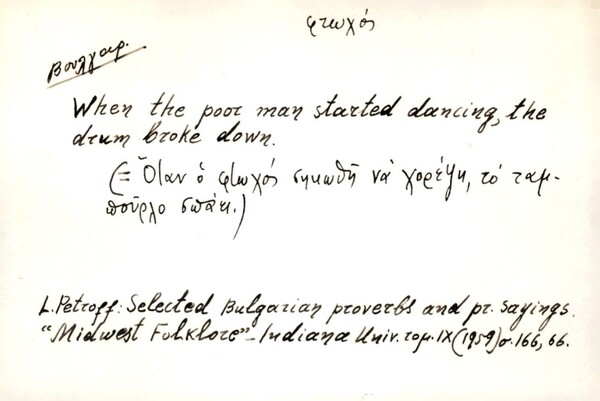 φτωχός
Βουλγαρ.
When the poor man started dancing, the
drum broke down.
(= Ὅταν ὁ φτωχός σηκωθῆ νά χορέψη, τό ταμ-
πούρλο σπάει.)
L. Petroff: Selected Bulgarian proverbs and pr. sayings.
"Midwest Folklore" - Indiana Univ. τομ. IX (1959) σ. 166, 66.